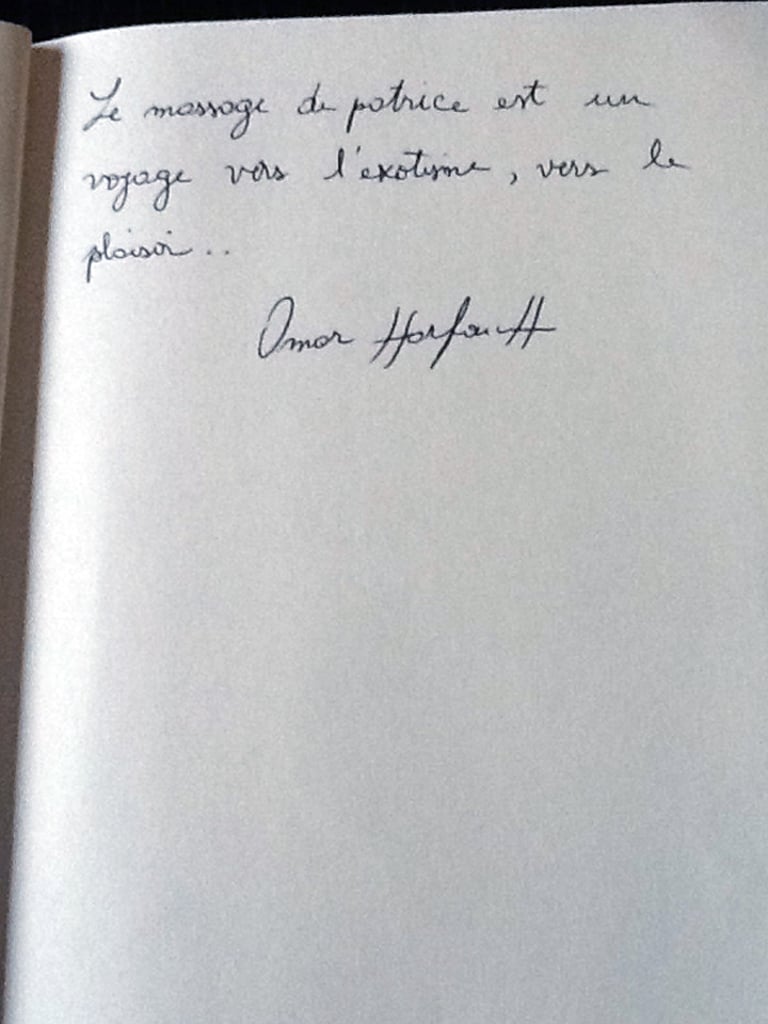 Le massage de patrice est un
voyage vers l'exotisme, vers le
plaisir..
Omar Harfouch